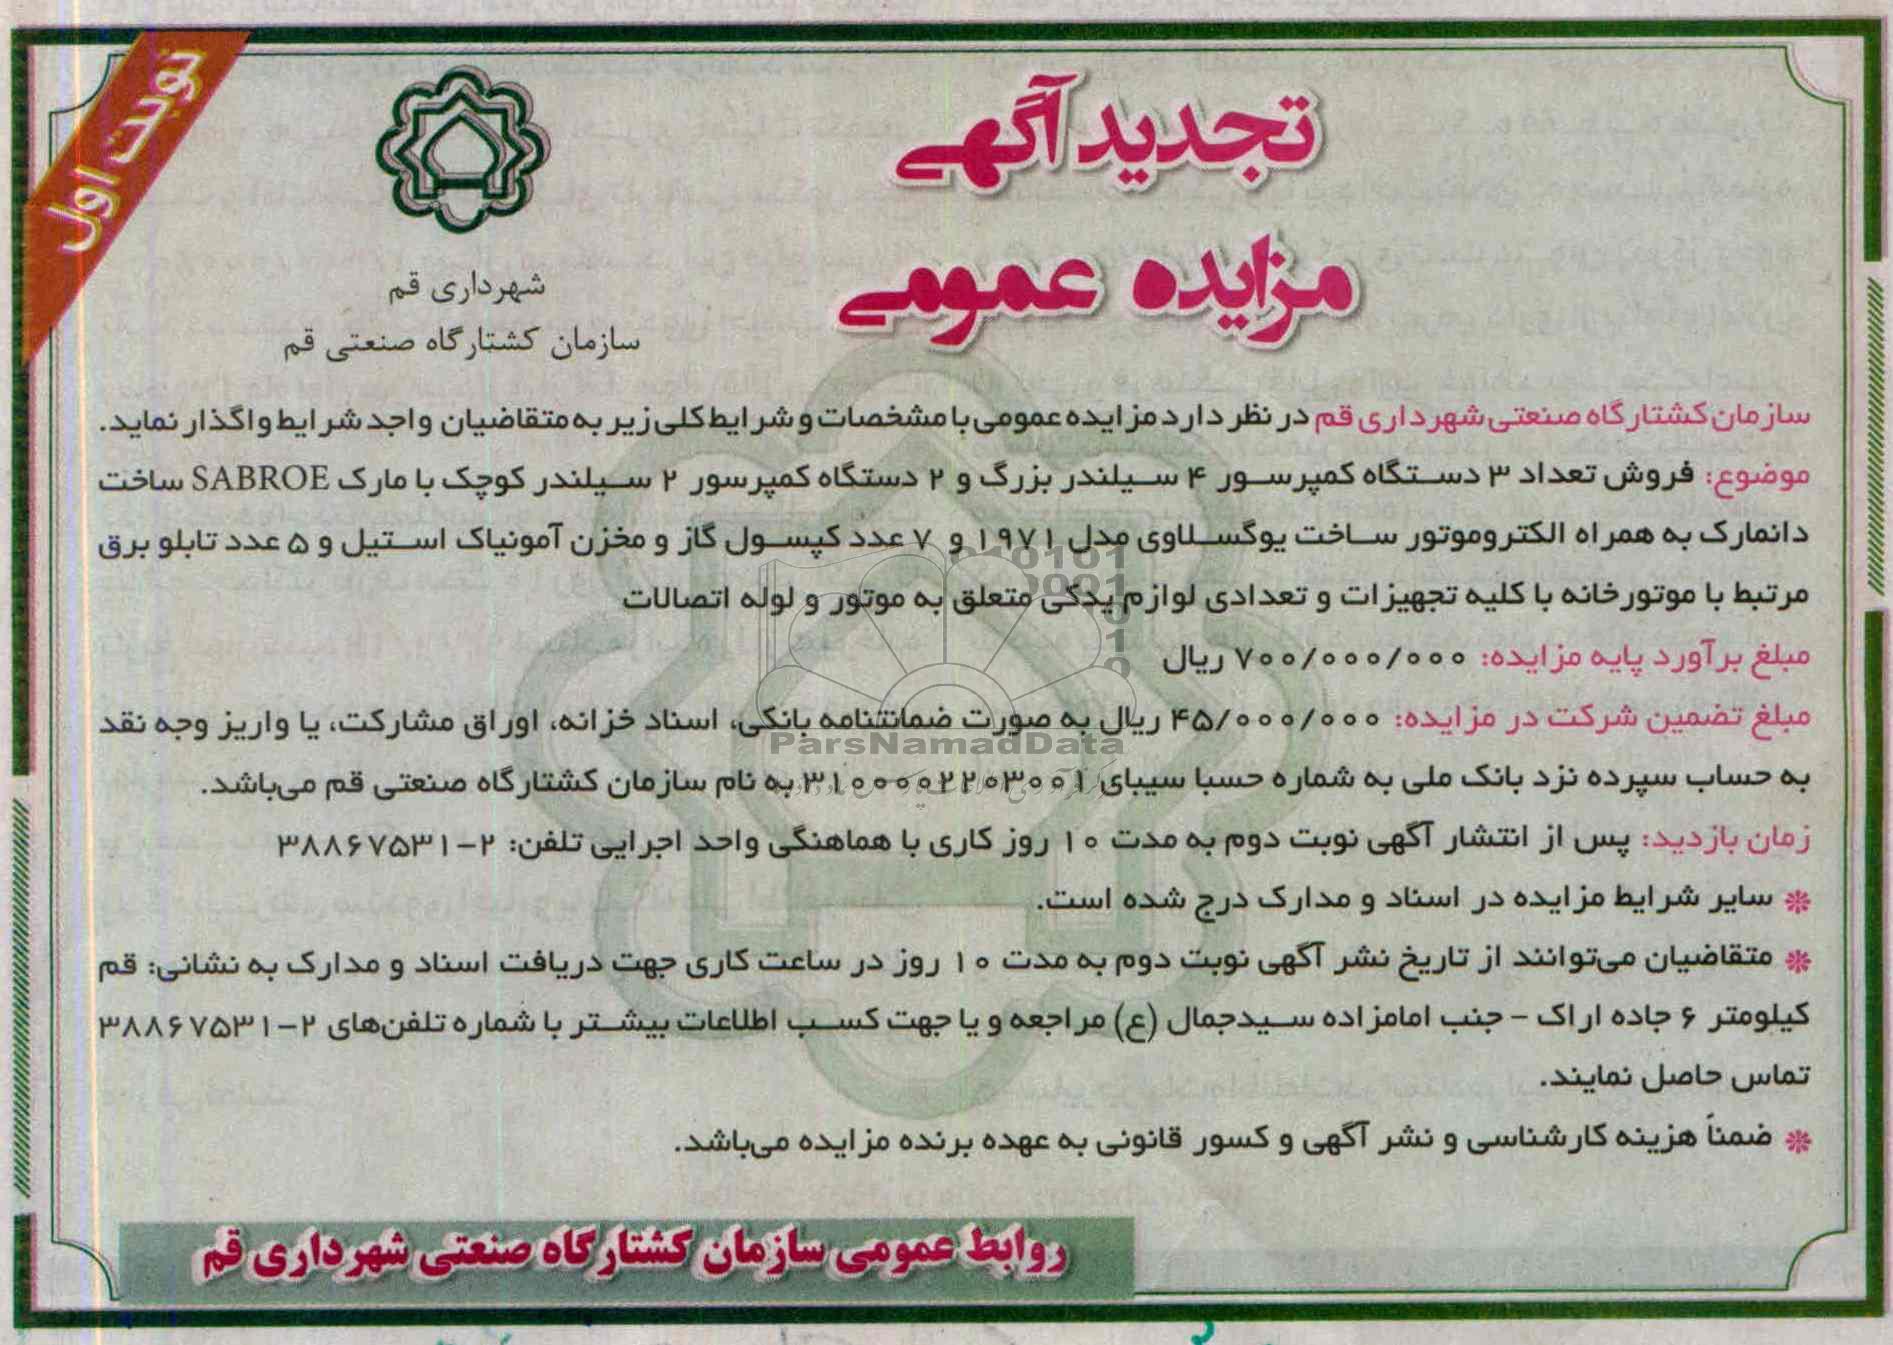 نوبت اول
تجدید آگهی
مزایده عمومی
شهرداری قم
سازمان کشتارگاه صنعتی قم
سازمان کشتارگاه صنعتی شهرداری قم در نظر دارد مزایده عمومی با مشخصات و شرایط کلی زیر به متقاضیان واجد شرایط واگذار نماید.
موضوع: فروش تعداد ۳ دستگاه کمپرسور ۴ سیلندر بزرگ و ۲ دستگاه کمپرسور ۲ سیلندر کوچک با مارک SABROE ساخت
دانمارک به همراه الکتروموتور ساخت یوگسلاوی مدل ۱۹۷۱ و ۷ عدد کپسول گاز و مخزن آمونیاک استیل و ۵ عدد تابلو برق
مرتبط با موتورخانه با کلیه تجهیزات و تعدادی لوازم یدکی متعلق به موتور و لوله اتصالات
مبلغ برآورد پایه مزایده: ۷۰۰/۰۰۰/۰۰۰ ریال
مبلغ تضمین شرکت در مزایده: ۴۵/۰۰۰/۰۰۰ ریال به صورت ضمانتنامه بانکی، اسناد خزانه، اوراق مشارکت، یا واریز وجه نقد
به حساب سپرده نزد بانک ملی به شماره حسبا سیبای ۳۱۰۰۰۰۲۲۰۳۰۰۱ به نام سازمان کشتارگاه صنعتی قم می‌باشد.
زمان بازدید: پس از انتشار آگهی نوبت دوم به مدت ۱۰ روز کاری با هماهنگی واحد اجرایی تلفن: ۲-۳۸۸۶۷۵۳۱
❋ سایر شرایط مزایده در اسناد و مدارک درج شده است.
❋ متقاضیان می‌توانند از تاریخ نشر آگهی نوبت دوم به مدت ۱۰ روز در ساعت کاری جهت دریافت اسناد و مدارک به نشانی: قم
کیلومتر ۶ جاده اراک - جنب امامزاده سیدجمال (ع) مراجعه و یا جهت کسب اطلاعات بیشتر با شماره تلفن‌های ۲-۳۸۸۶۷۵۳۱
تماس حاصل نمایند.
❋ ضمناً هزینه کارشناسی و نشر آگهی و کسور قانونی به عهده برنده مزایده می‌باشد.
روابط عمومی سازمان کشتارگاه صنعتی شهرداری قم
ParsNamadData